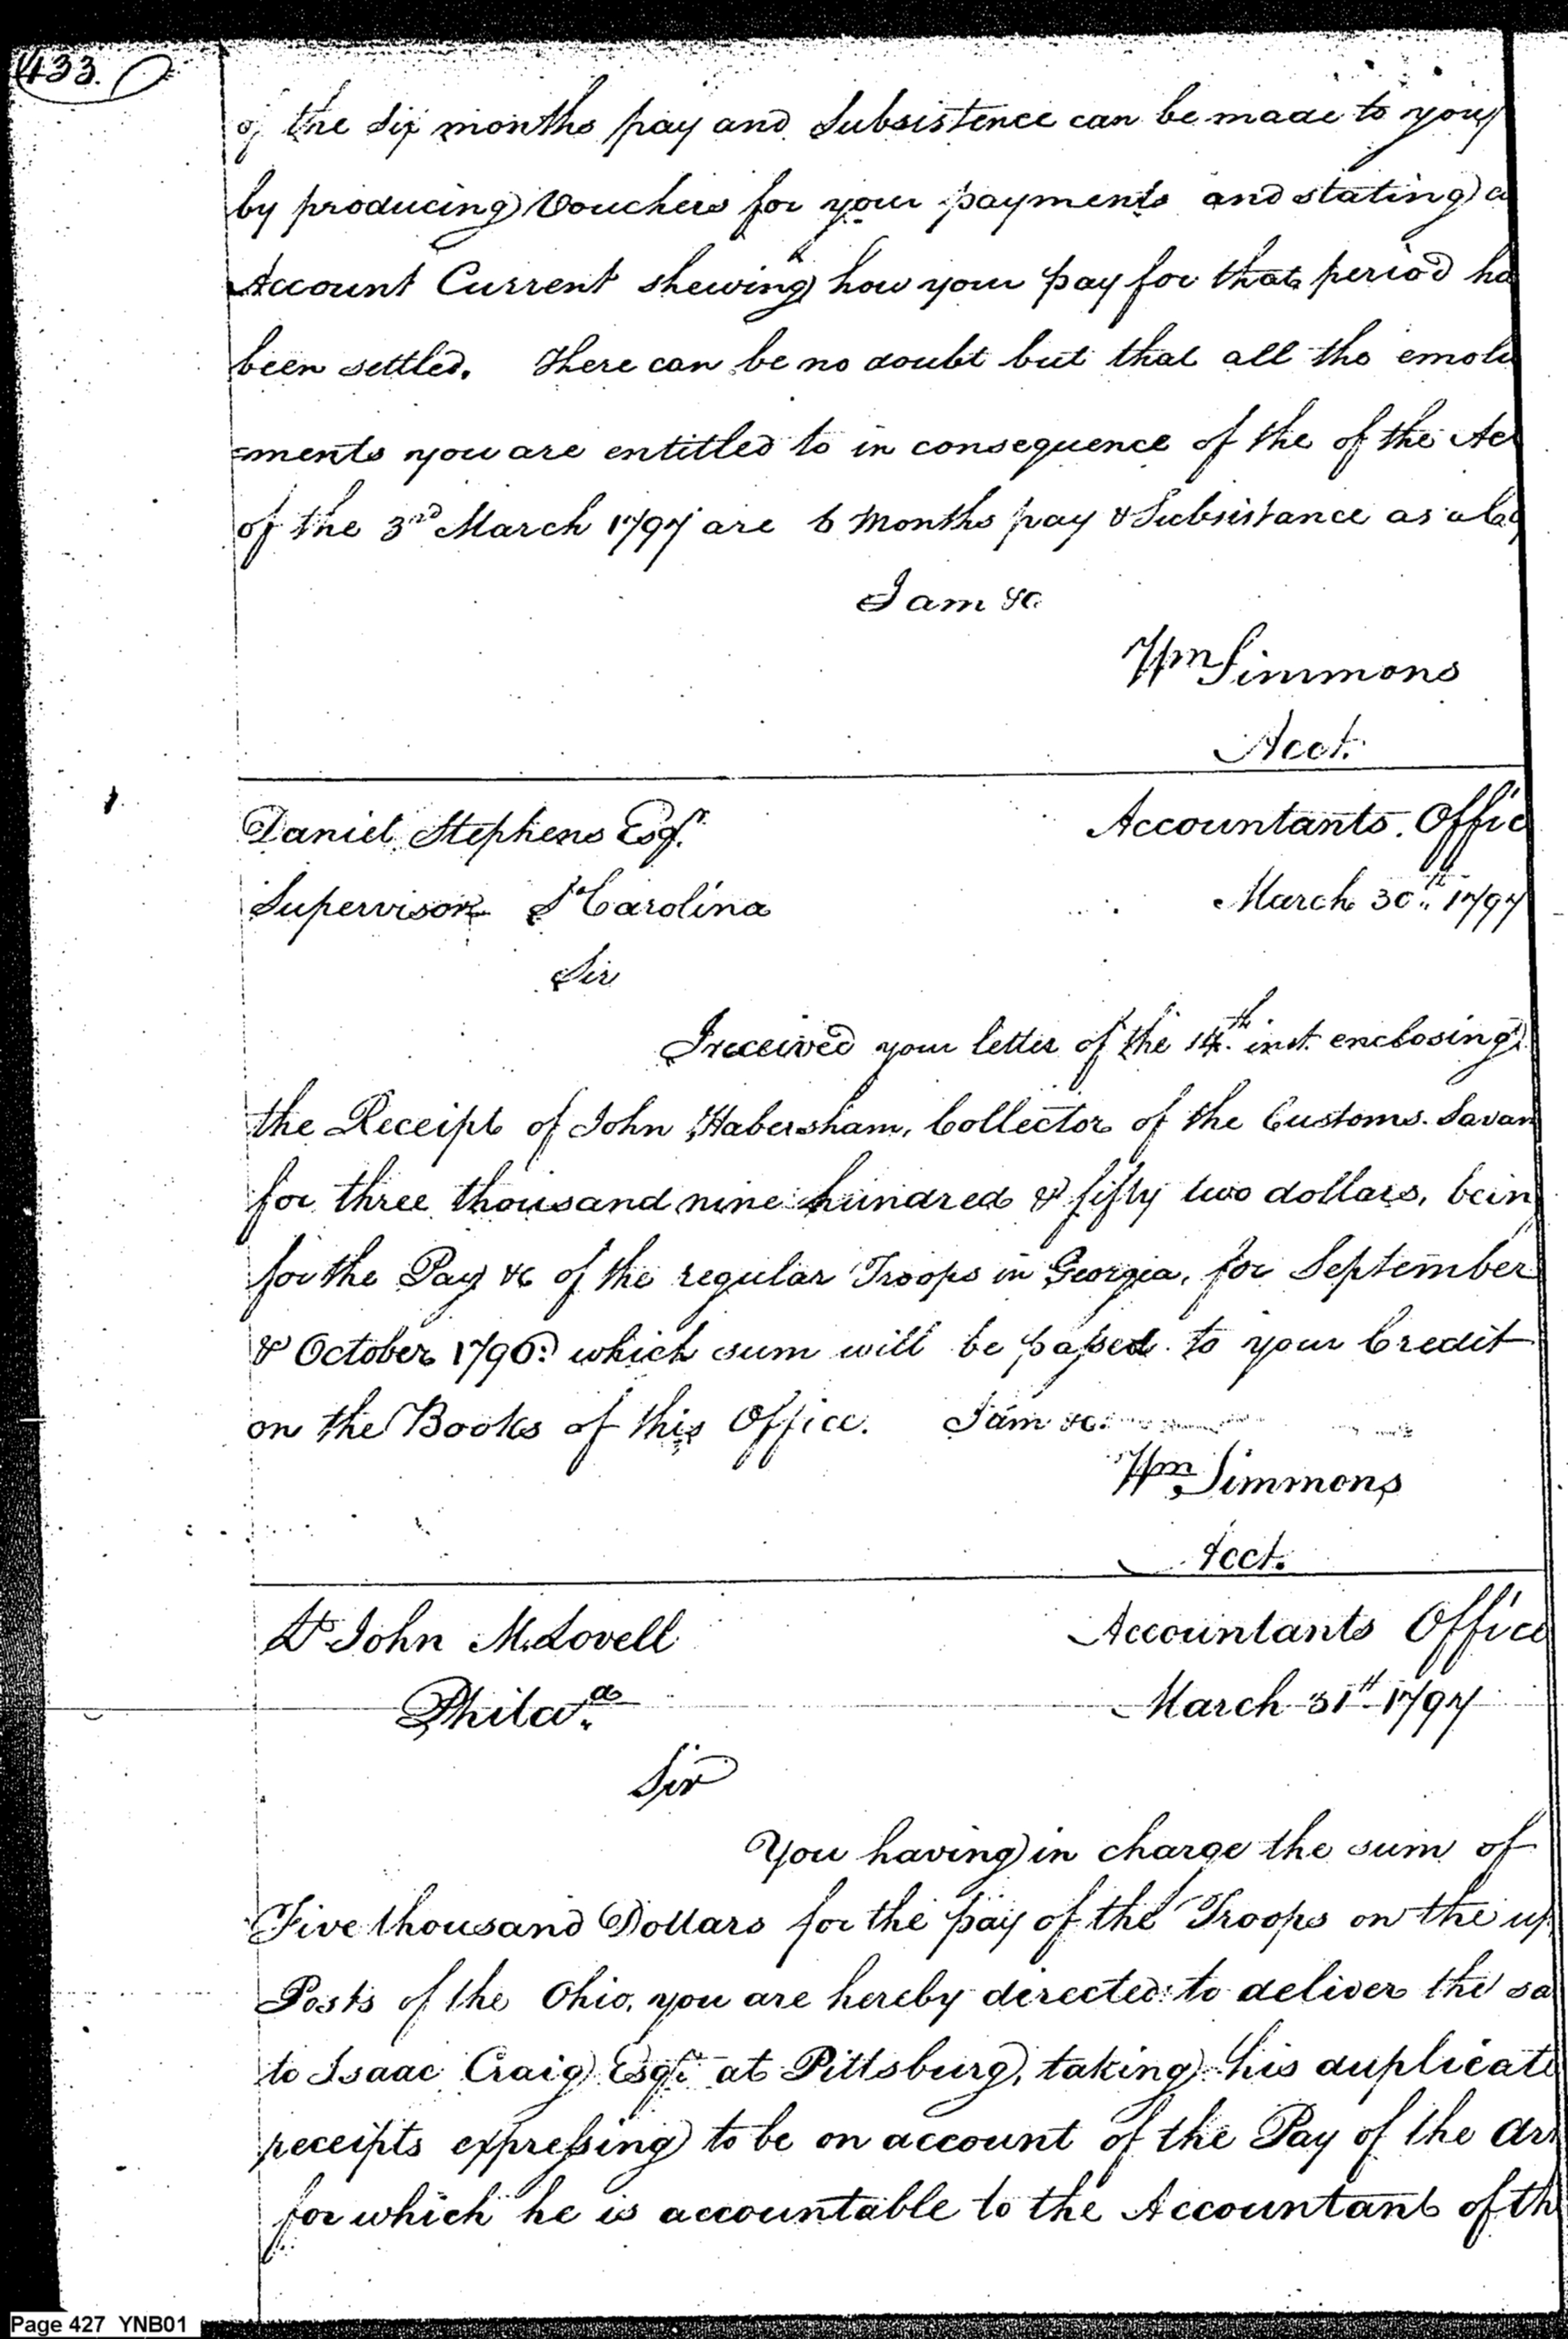 433.
of the six months pay and Subsistence can be made to you
by producing Vouchers for your payments and stating a
Account Current shewing how your pay for that period ha
been settled. There can be no doubt but that all the emolu
=ments you are entitled to in consequence of the of the Act
of the 3rd March 1797 are 6 Months pay & Subsistance as abo
I am &c
Wm Simmons
Acct.
Daniel Stephens Esqr. Accountants Offic
Supervisor S Carolina March 30th 1797
Sir
I received your letter of the 14th inst. enclosing
the Receipt of John Habersham, Collector of the Customs. Savan
for three thousand nine hundred & fifty two dollars, bein
for the Pay &c of the regular Troops in Georgia, for September
& October 1796: which sum will be passed to your Credit
on the Books of this Office. I am &c.
Wm Simmons
Acct.
Lt John M. Lovell Accountants Office
Philaa. March 31st 1797
Sir
You having in charge the sum of
Five thousand Dollars for the pay of the Troops on the up
Posts of the Ohio, you are hereby directed to deliver the sa
to Isaac Craig Esqr. at Pittsburg, taking his duplicate
receipts expressing to be on account of the Pay of the Ar
for which he is accountable to the Accountant of th
Page 427 YNB01